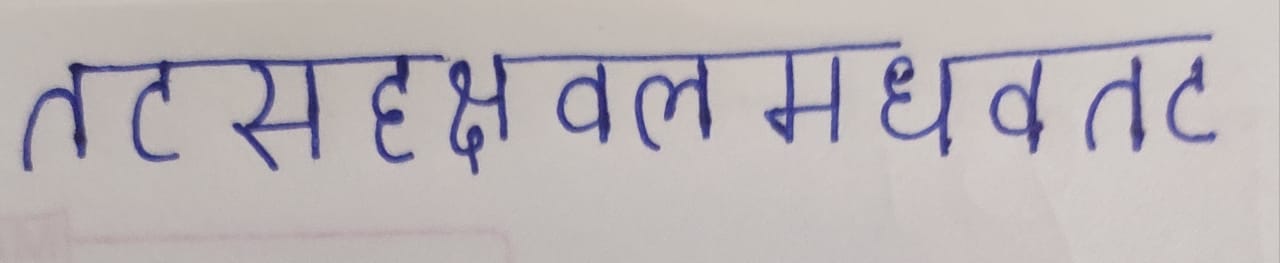 तटसहक्षवलमधवतट